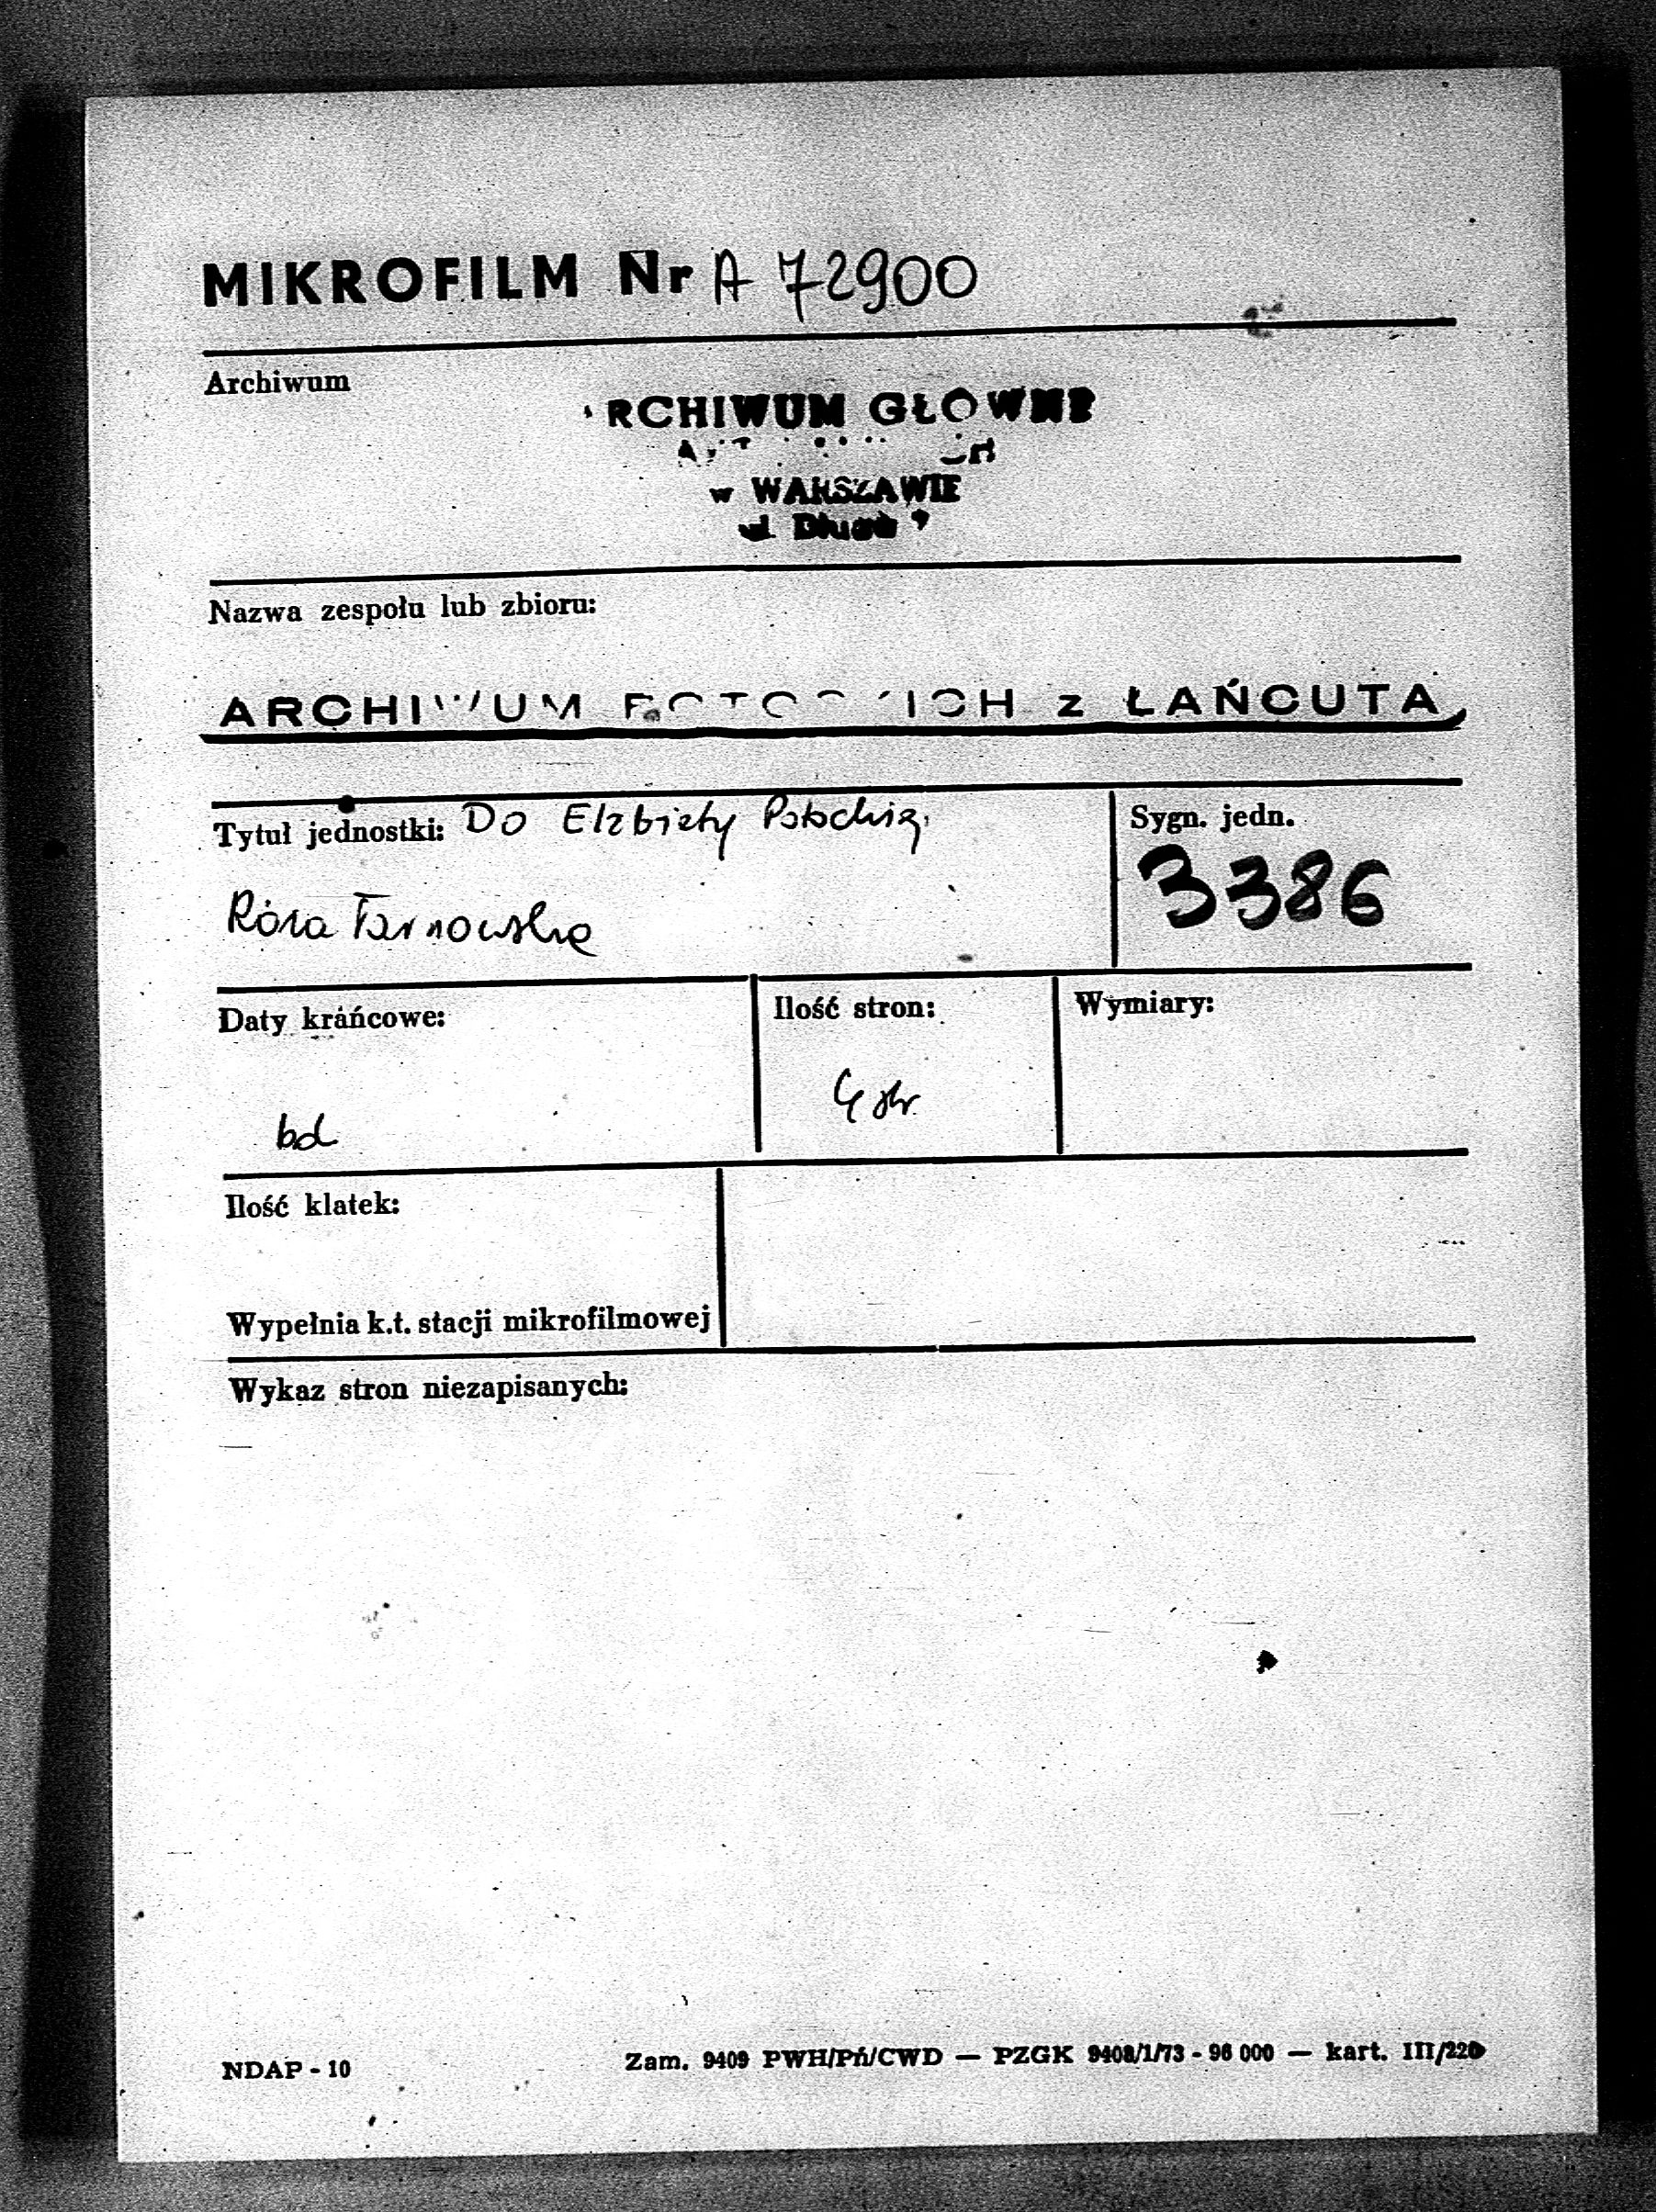 MIKROFILM Nr A 72900
Archiwum
ARCHIWUM GŁÓWNE
w WARSZAWIE
ul. Długa 7
Nazwa zespołu lub zbioru:
ARCHIWUM POTOCKICH z ŁAŃCUTA
Tytuł jednostki: Do Elżbiety Potockiej.
Róża Tarnowska
Sygn. jedn.
3386
Daty krańcowe:
bd
Ilość stron:
4 str.
Wymiary:
Ilość klatek:
Wypełnia k.t. stacji mikrofilmowej
Wykaz stron niezapisanych:
NDAP - 10
Zam. 9409 PWH/Pń/CWD — PZGK 9408/1/73 - 96 000 — kart. III/220